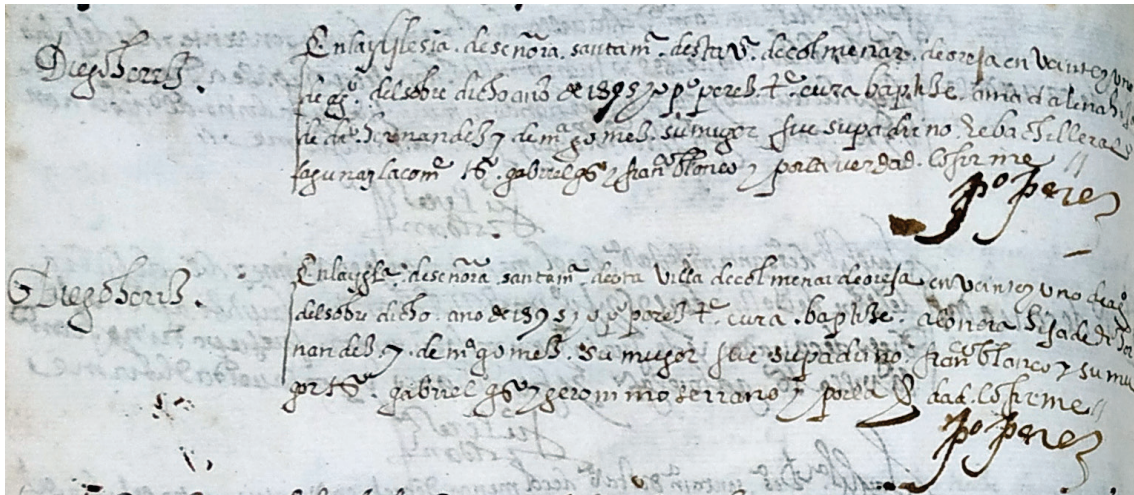 Diego herrz.
En la yglesia. de señora. santa mª. desta vª. de colmenar. de oreja en veinte y uno
de agº. del sobre dicho año de 1595 yo pº perez tte. cura baptize. a madalena hija
de dº. hernandez y de mª gomez. su muger fue su padrino
laguna y la comᵉ tsº. gabriel gsº y franᶜᵒ blanco y por la verdad. lo firme
pº perez
Diego herrz.
En la yglª. de señora. santa mª. desta villa de colmenar de oreja en veinte y uno de agº
del sobre dicho. año de 1595 yo pº perez tte. cura. baptize. a leonora hija de dº her
nandez y. de mª gomez. su muger fue su padrino franᶜᵒ blanco y su mu
ger tsº. gabriel gsº y geronimo serrano y por la dad. lo firme
pº perez